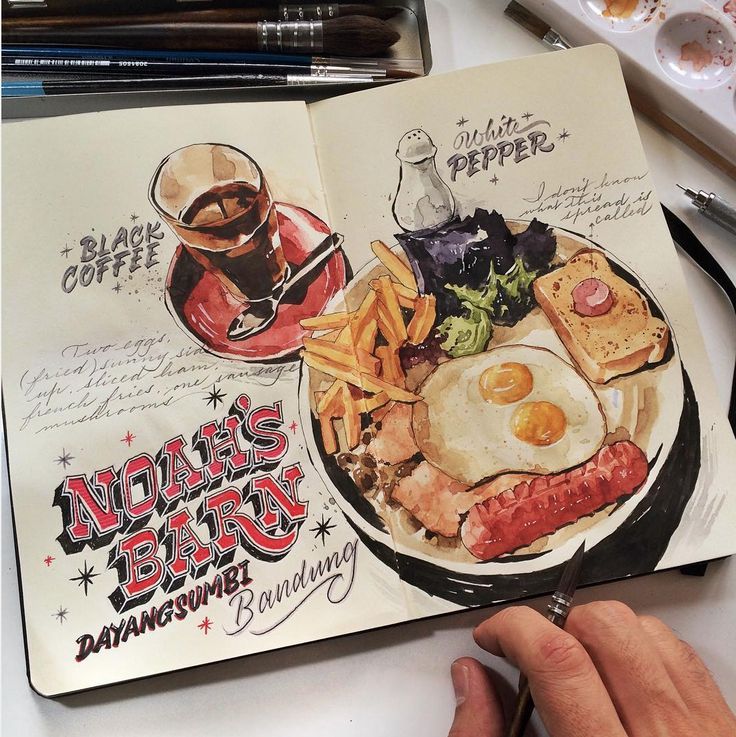 BLACK
COFFEE
White
PEPPER
I don't know
what this
spread is
called
Two eggs,
(fried) sunny side
up. sliced ham.
french fries, one sausage
mushrooms
NOAH'S
BARN
DAYANGSUMBI
Bandung